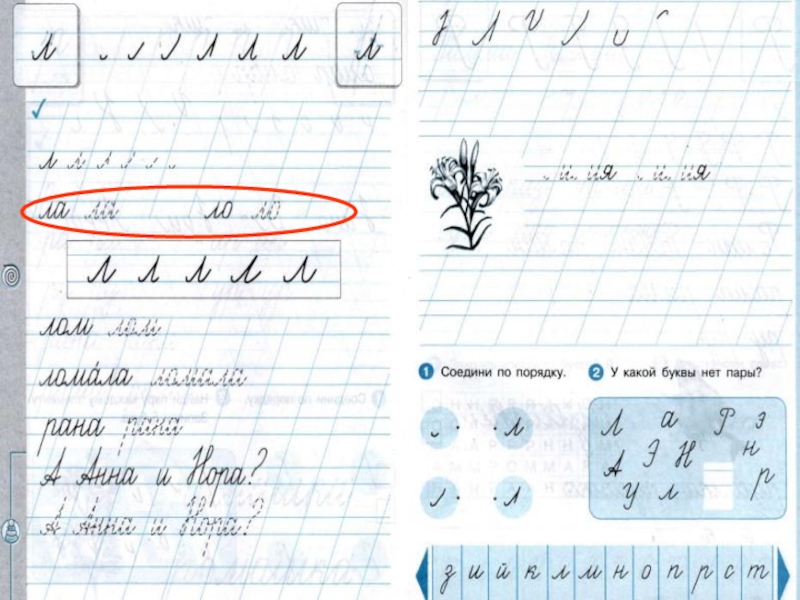 л л л л л
л
ла ла ло ло
л л л л л
лом лом
лома́ла ломала
рана рана
А Анна и Нора?
А Анна и Нора?
лилия лилия
1 Соедини по порядку.
2 У какой буквы нет пары?
л
л
Л а Р э
А Э Н н
у л р
з и й к л м н о п р с т